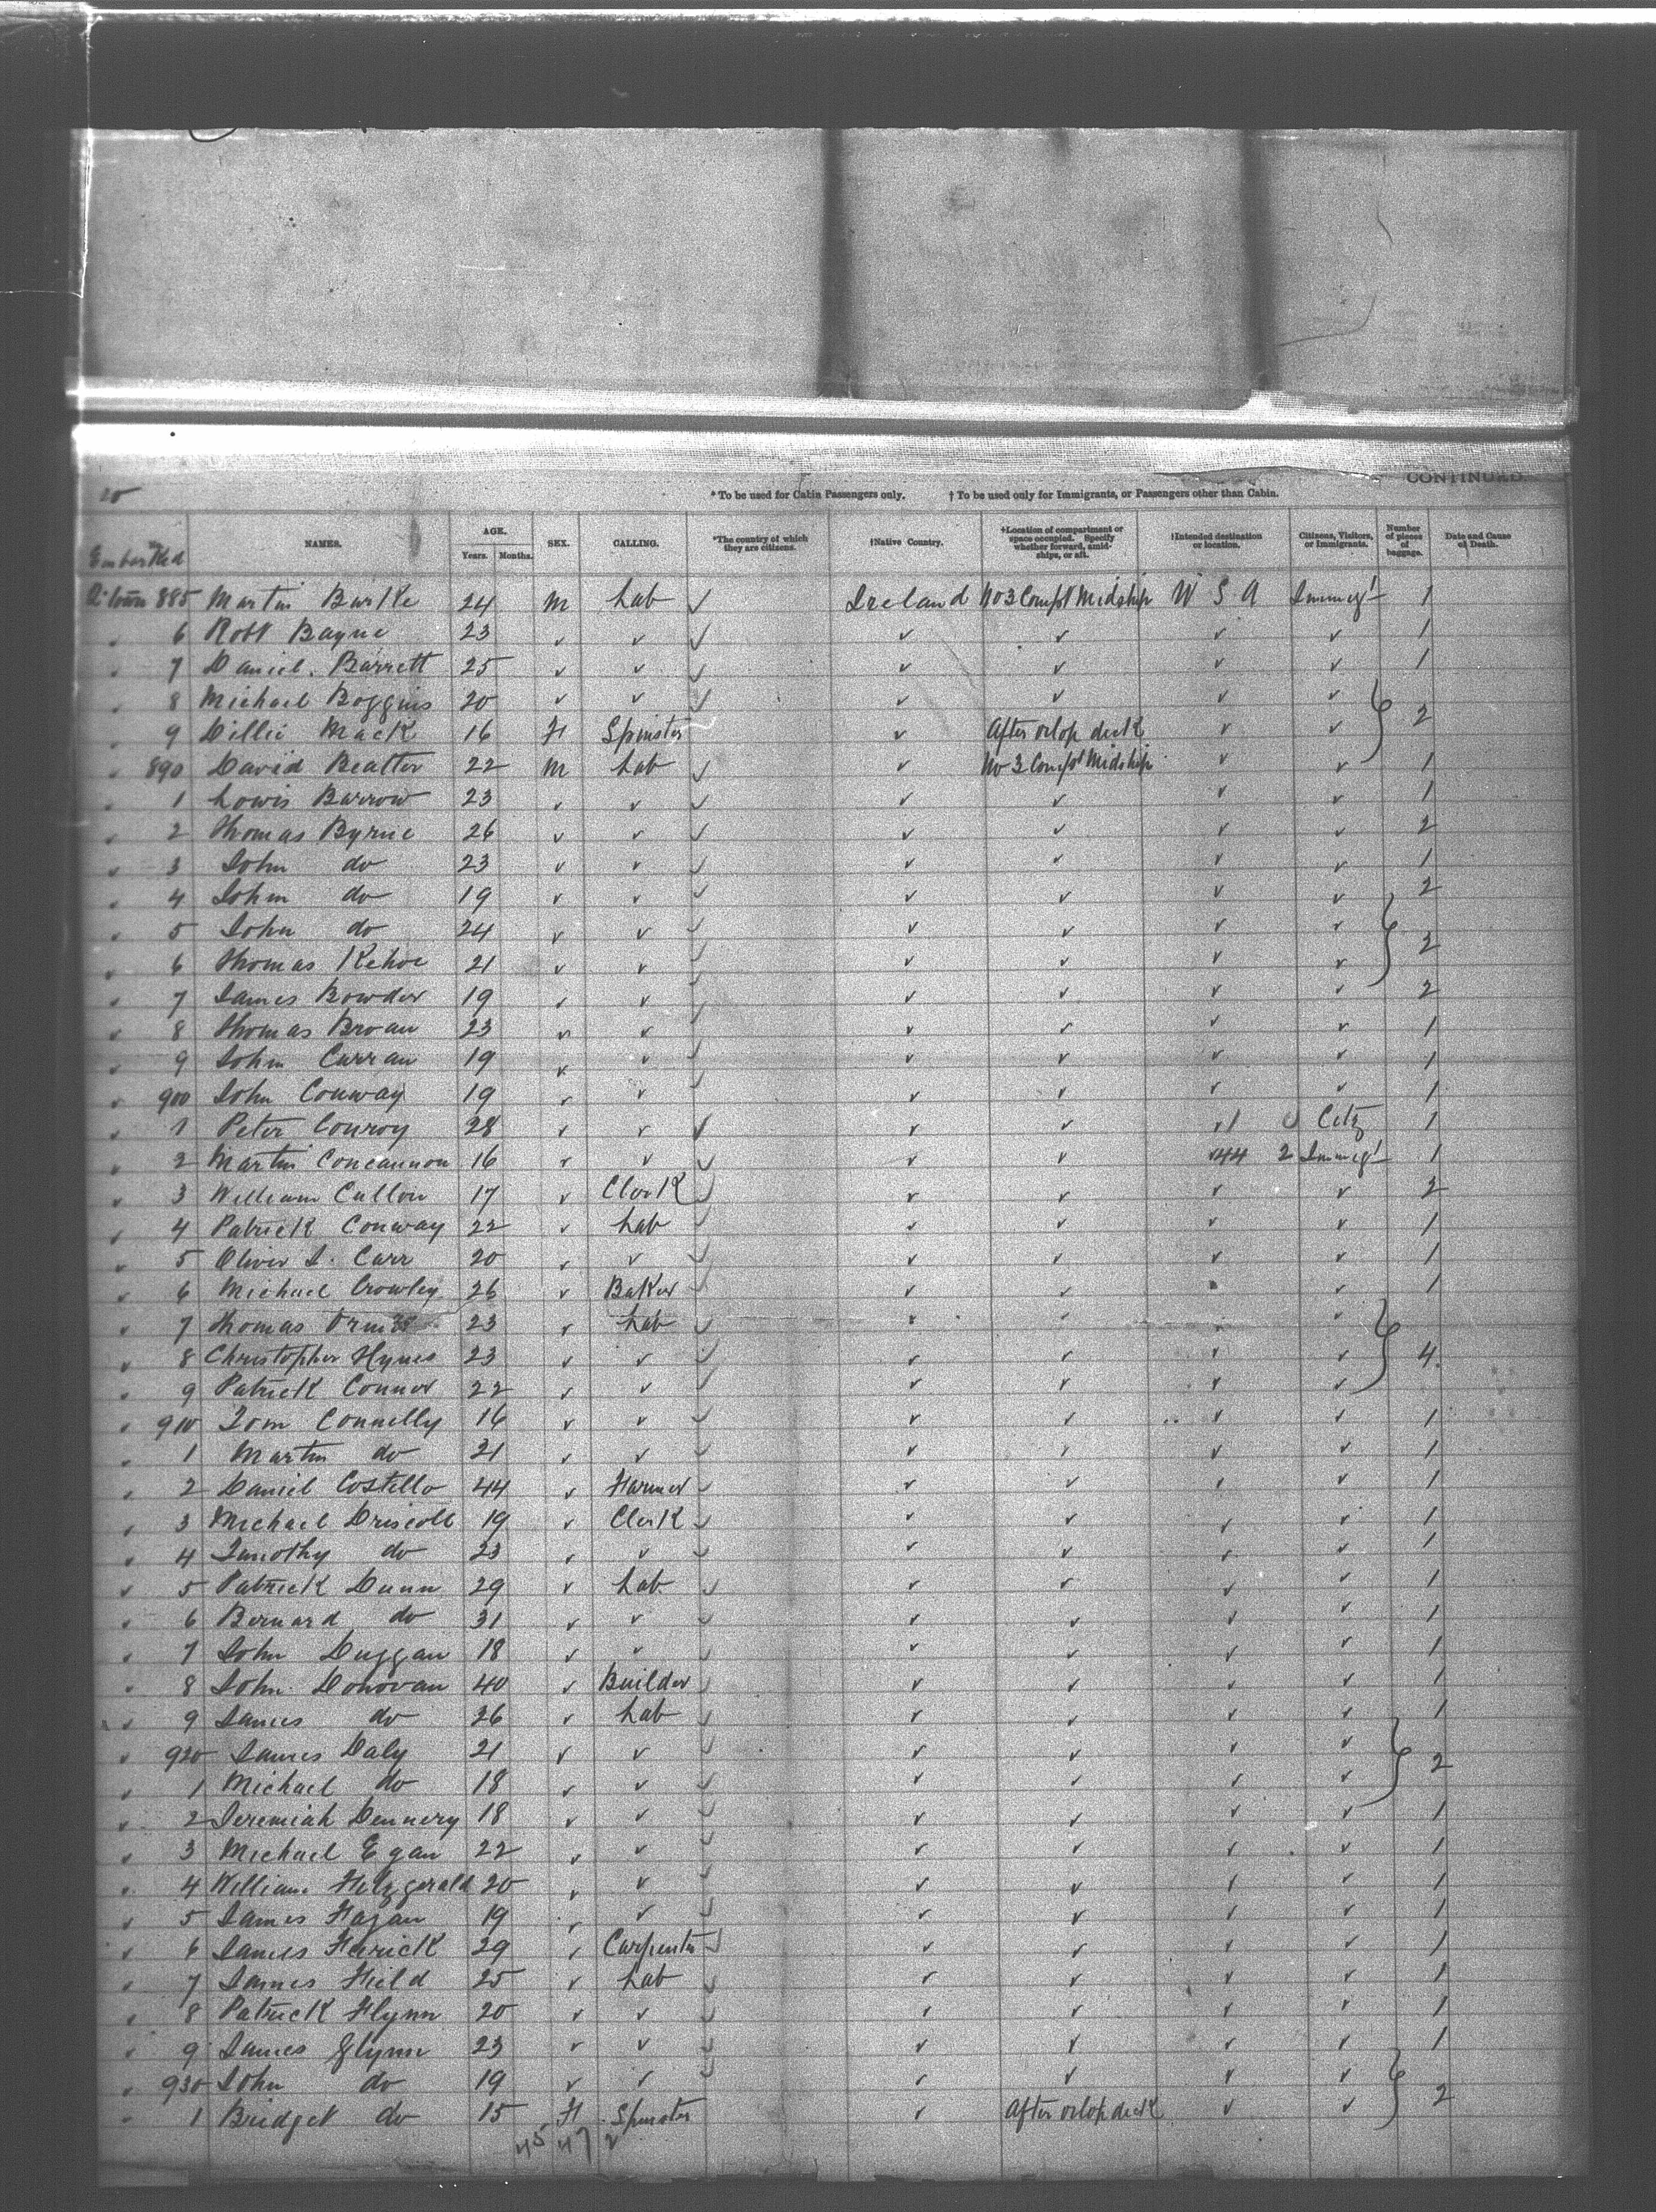 CONTINUED.
20 * To be used for Cabin Passengers only. † To be used only for Immigrants, or Passengers other than Cabin.
Embarked NAMES. AGE. Years. Months. SEX. CALLING. *The country of which they are citizens. †Native Country. †Location of compartment or space occupied. Specify whether forward, amidships, or aft. †Intended destination or location. Citizens, Visitors, or Immigrants. Number of pieces of baggage. Date and Cause of Death.
Q. town 885 Martin Burke 24 M Lab ✓ Ireland No 3 Compt Midship U S A Immigt 1
6 Robt Bayne 23 1
7 Daniel Barrett 25 1
8 Michael Boggins 20
9 Dillie Mack 16 F Spinster After orlop deck 2
890 David Beatter 22 M Lab No 3 Compt Midship 1
1 Lowis Barrow 23 1
2 Thomas Byrne 26 2
3 John do 23 1
4 John do 19 2
5 John do 24
6 Thomas Kehoe 21 2
7 James Bowder 19 2
8 Thomas Broan 23 1
9 John Curran 19 1
900 John Conway 19 1
1 Peter Conroy 28 1 U Citz 1
2 Martin Concannon 16 44 2 Immigt 1
3 William Cullon 17 Clerk 2
4 Patrick Conway 22 Lab 1
5 Oliver J. Carr 20 1
6 Michael Crowley 26 Baker 1
7 Thomas 23 Lab
8 Christopher Hynes 23 4
9 Patrick Connor 22
910 Tom Connelly 16 1
1 Martin do 21 1
2 Daniel Costello 44 Farmer 1
3 Michael Driscoll 19 Clerk 1
4 Timothy do 23 1
5 Patrick Dunn 29 Lab 1
6 Bernard do 31 1
7 John Duggan 18 1
8 John Donovan 40 Builder 1
9 James do 26 Lab 1
920 James Daly 21
1 Michael do 18 2
2 Jeremiah Dennery 18 1
3 Michael Egan 22 1
4 William Fitzgerald 20 1
5 James Fagan 19 1
6 James Ferick 29 Carpenter 1
7 James Field 25 Lab 1
8 Patrick Flynn 20 1
9 James Glynn 23 1
930 John do 19
1 Bridget do 15 F Spinster After orlop deck 2
45 47 2